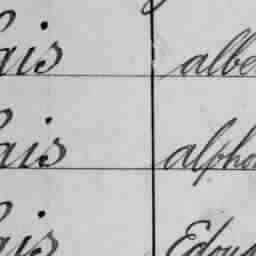 ais albe
ais alpho
ais Edou